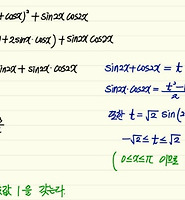 +cosx)² + sin2x cos2x
+2sinx·cosx) + sin2x cos2x
in2x + sin2x·cos2x
sin2x+cos2x = t
sin2x·cos2x = t²-1/2
t = √2 sin(2
-√2 ≤ t ≤ √2
( 0≤x≤π 이므로
값 1을 갖는다.